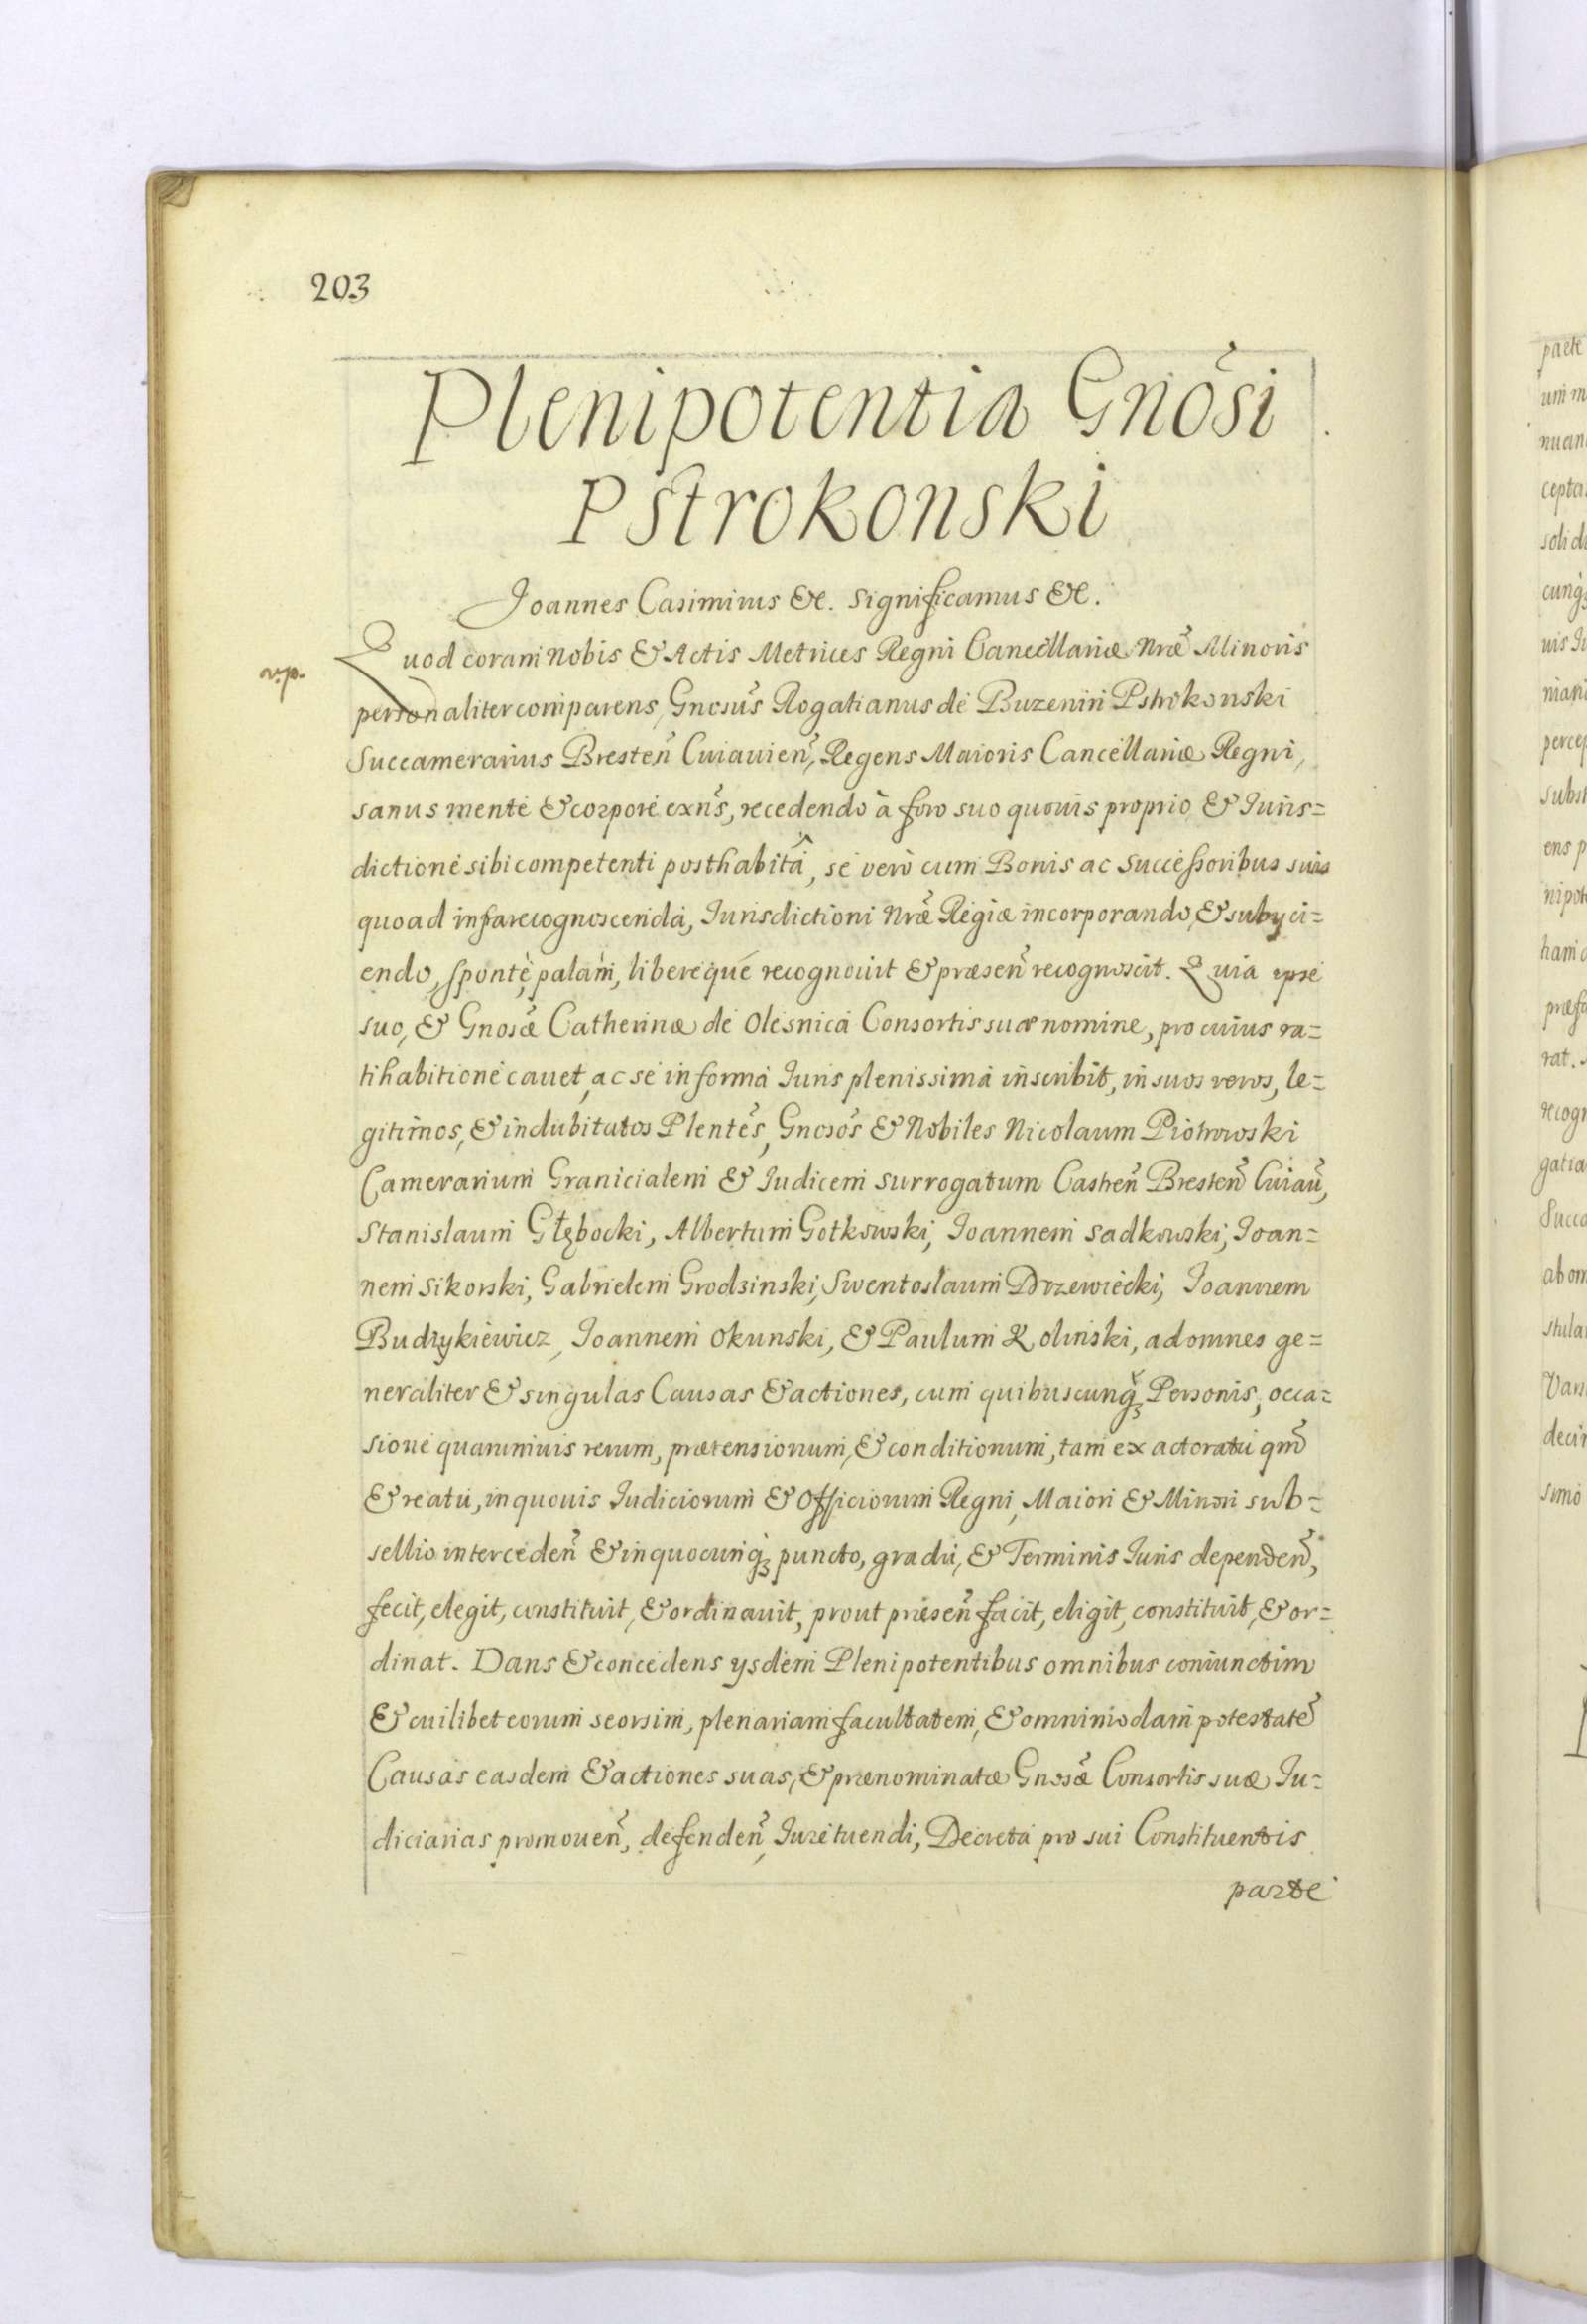 203
Plenipotentia Gnõsi
Pstrokonski
Joannes Casimirus &c. significamus &c.
Quod coram nobis & Actis Metrices Regni Cancellariæ nræ̃ Minoris
personaliter comparens, Gnosus̃ Rogatianus de Buzenin Pstrokonski
Succamerarius Bresteñ Cuiauieñ, Regens Maioris Cancellariæ Regni,
sanus mente & corpore exñs, recedendo à foro suo quouis proprio & Iuris=
dictione sibi competenti posthabitâ, se verò cum Bonis ac successoribus suis
quoad infra recognoscenda, Iurisdictioni nræ̃ Regiæ incorporando, & subyci=
endo, sponte, palam, libereque recognouit & præseñ recognoscit. Quia ipse
suo, & Gnosæ̃ Catherinæ de Olesnica Consortis suæ nomine, pro cuius ra=
tihabitione cauet, ac se in forma Iuris plenissima inscribit, in suos veros, le=
gitimos, & indubitatos Plenteš, Gnosos̃ & Nobiles Nicolaum Piotrowski
Camerarium Granicialem & Iudicem surrogatum Castreñ Bresteñ Cuiaũ,
Stanislaum Głębocki, Albertum Gotkowski, Joannem Sadkowski, Joan=
nem Sikorski, Gabrielem Grodzinski, Swentoslaum Drzewiecki, Joannem
Budzykiewicz, Joannem Okunski, & Paulum Kolinski, ad omnes ge=
neraliter & singulas Causas & actiones, cum quibuscunq; Personis, occa=
sione quarumuis rerum, prætensionum, & conditionum, tam ex actoratu qm̃
& reatu, in quouis Iudiciorum & Officiorum Regni, Maiori & Minori sub=
sellio intercedeñ & in quocunq; puncto, gradu, & Terminis Iuris dependeñ,
fecit, elegit, constituit, & ordinauit, prout præseñ facit, eligit, constituit, & or=
dinat. Dans & concedens ysdem Plenipotentibus omnibus coniunctim
& cuilibet eorum seorsim, plenariam facultatem, & omnimodam potestatẽ
Causas easdem & actiones suas, & prænominatæ Gnosæ̃ Consortis suæ Iu=
diciarias promoueñ, defendeñ, Iure tuendi, Decreta pro sui Constituentis
parte